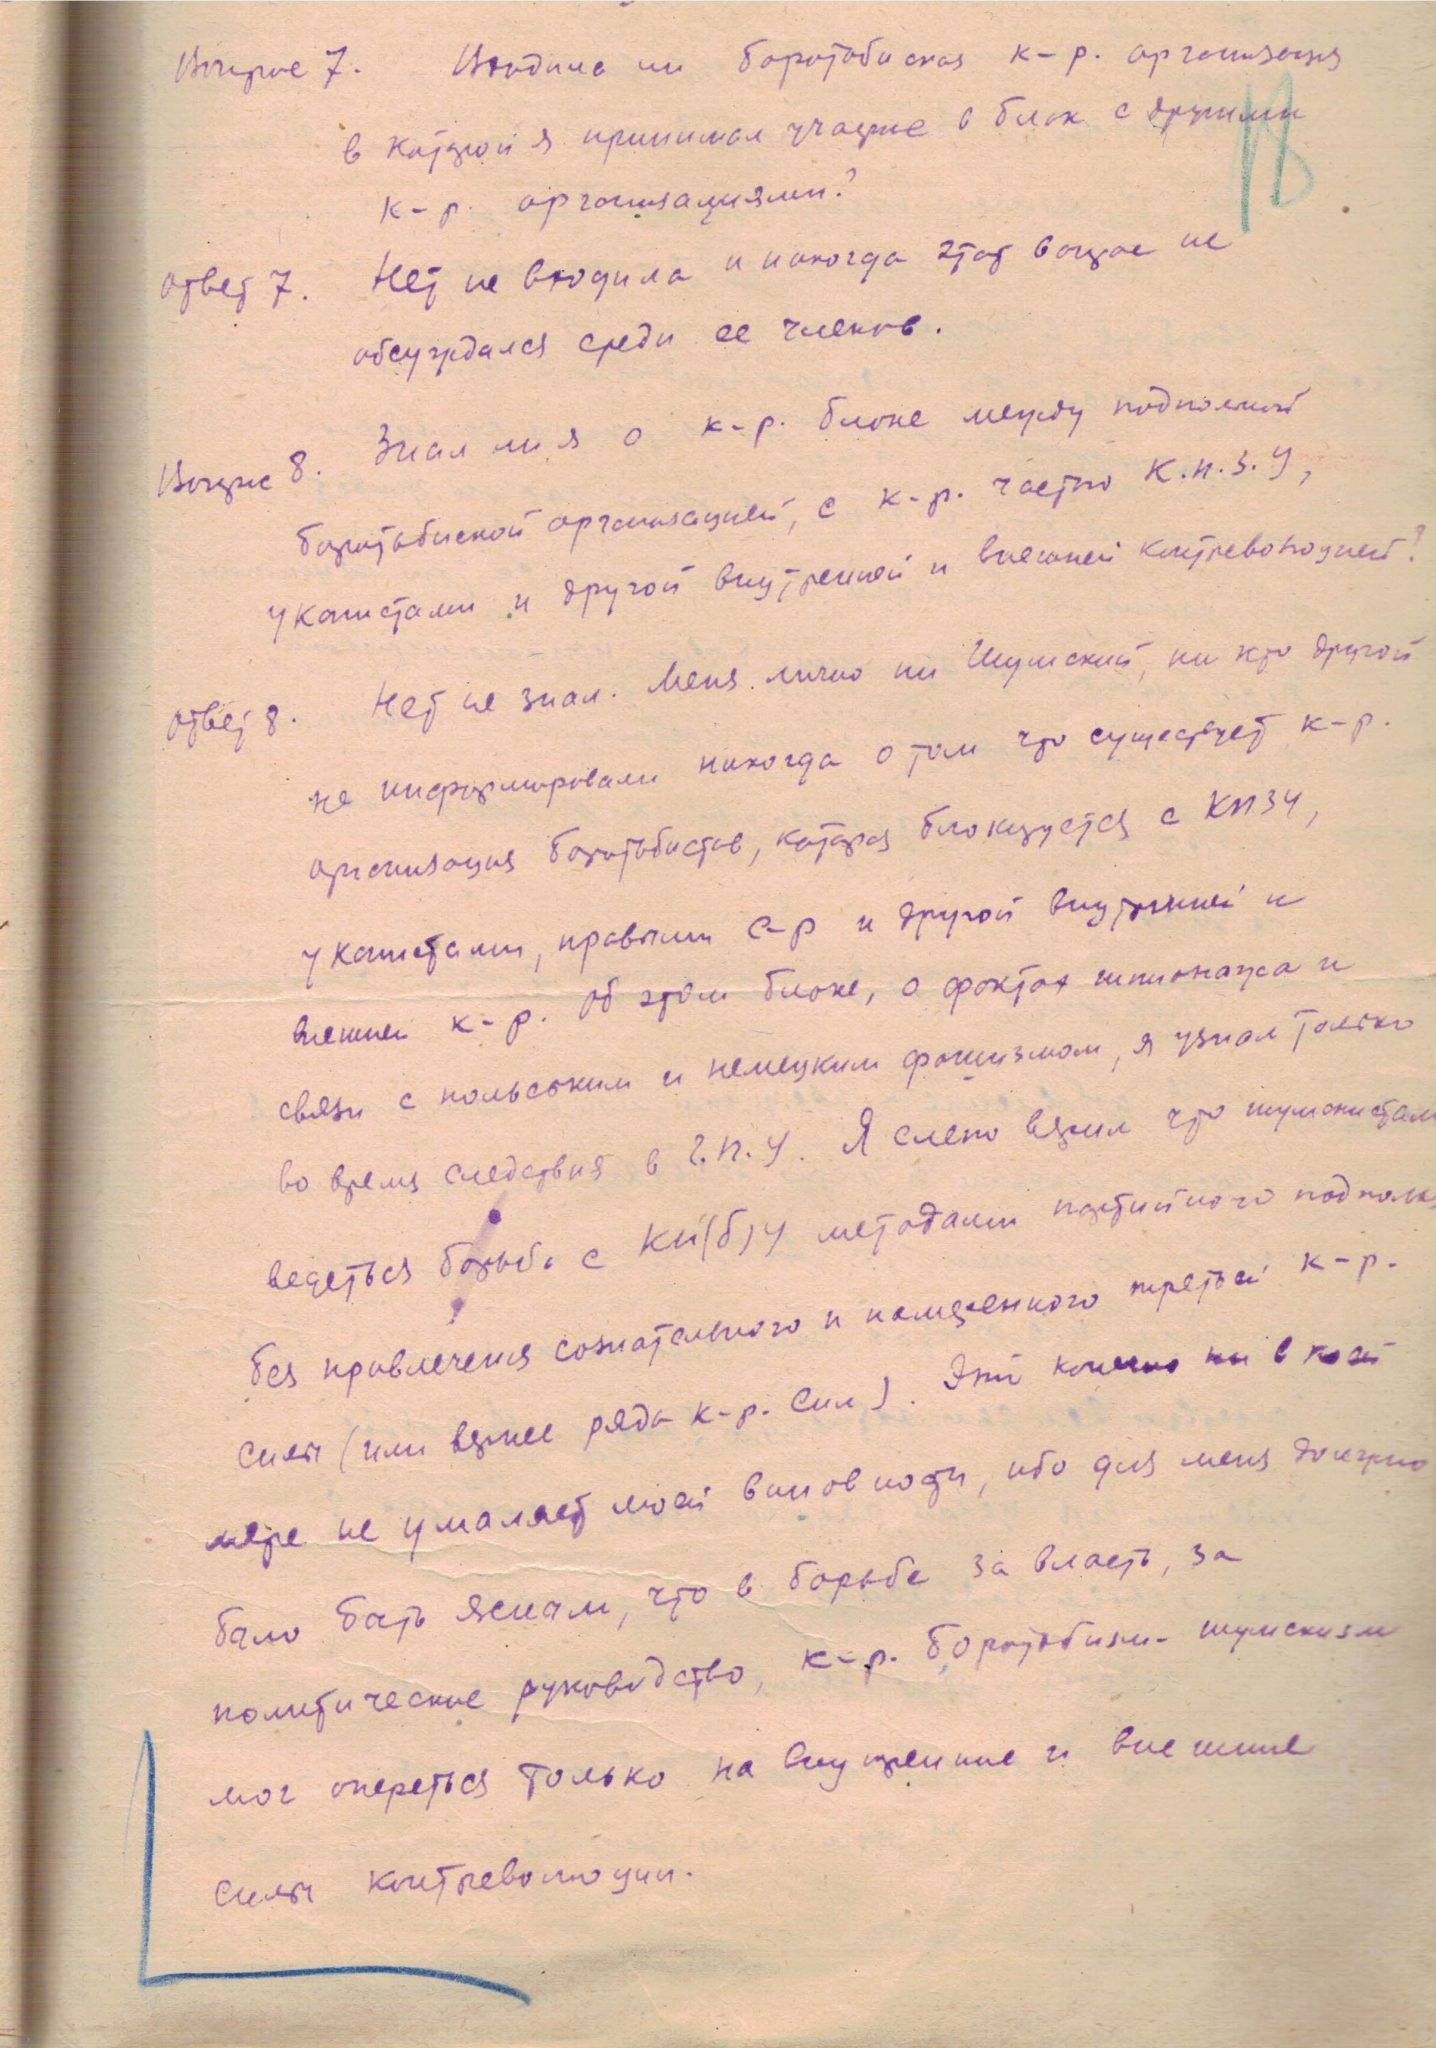 Вопрос 7. Входила ли боротьбиская к-р. организация
в которой я принимал участие в блок с другими
к-р. организациями?
Ответ 7. Нет не входила и никогда этот вопрос не
обсуждался среди ее членов.
Вопрос 8. Знал ли я о к-р. блоке между подпольной
боротьбиской организацией, с к-р. частью К.П.З.У,
укапистами и другой внутренней и внешней контрреволюцией?
Ответ 8. Нет не знал. Меня лично ни Шумский, ни кто другой
не информировали никогда о том что существует к-р.
организация боротьбистов, которая блокируется с КПЗУ,
укапистами, правыми с-р и другой внутренней и
внешней к-р. Об этом блоке, о фактах шпионажа и
связи с польским и немецким фашизмом, я узнал только
во время следствия в Г.П.У. Я слепо верил что шумскистами
ведеться борьба с КП(б)У методами партийного подполья,
без привлечения сознательного и намеренного третьей к-р.
силы (или вернее ряда к-р. сил). Это конечно ни в коей
мере не умаляет моей виновности, ибо для меня должно
было быть ясным, что в борьбе за власть, за
политическое руководство, к-р. боротьбизм-шумскизм
мог опереться только на внутренние и внешние
силы контрреволюции.